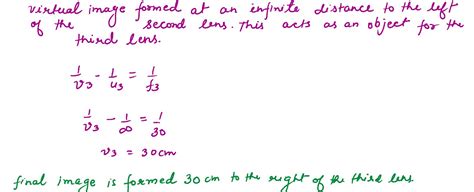 virtual image formed at an infinite distance to the left
of the second lens. This acts as an object for the
third lens.
1/v3 - 1/u3 = 1/f3
1/v3 - 1/∞ = 1/30
v3 = 30cm
final image is formed 30 cm to the right of the third lens